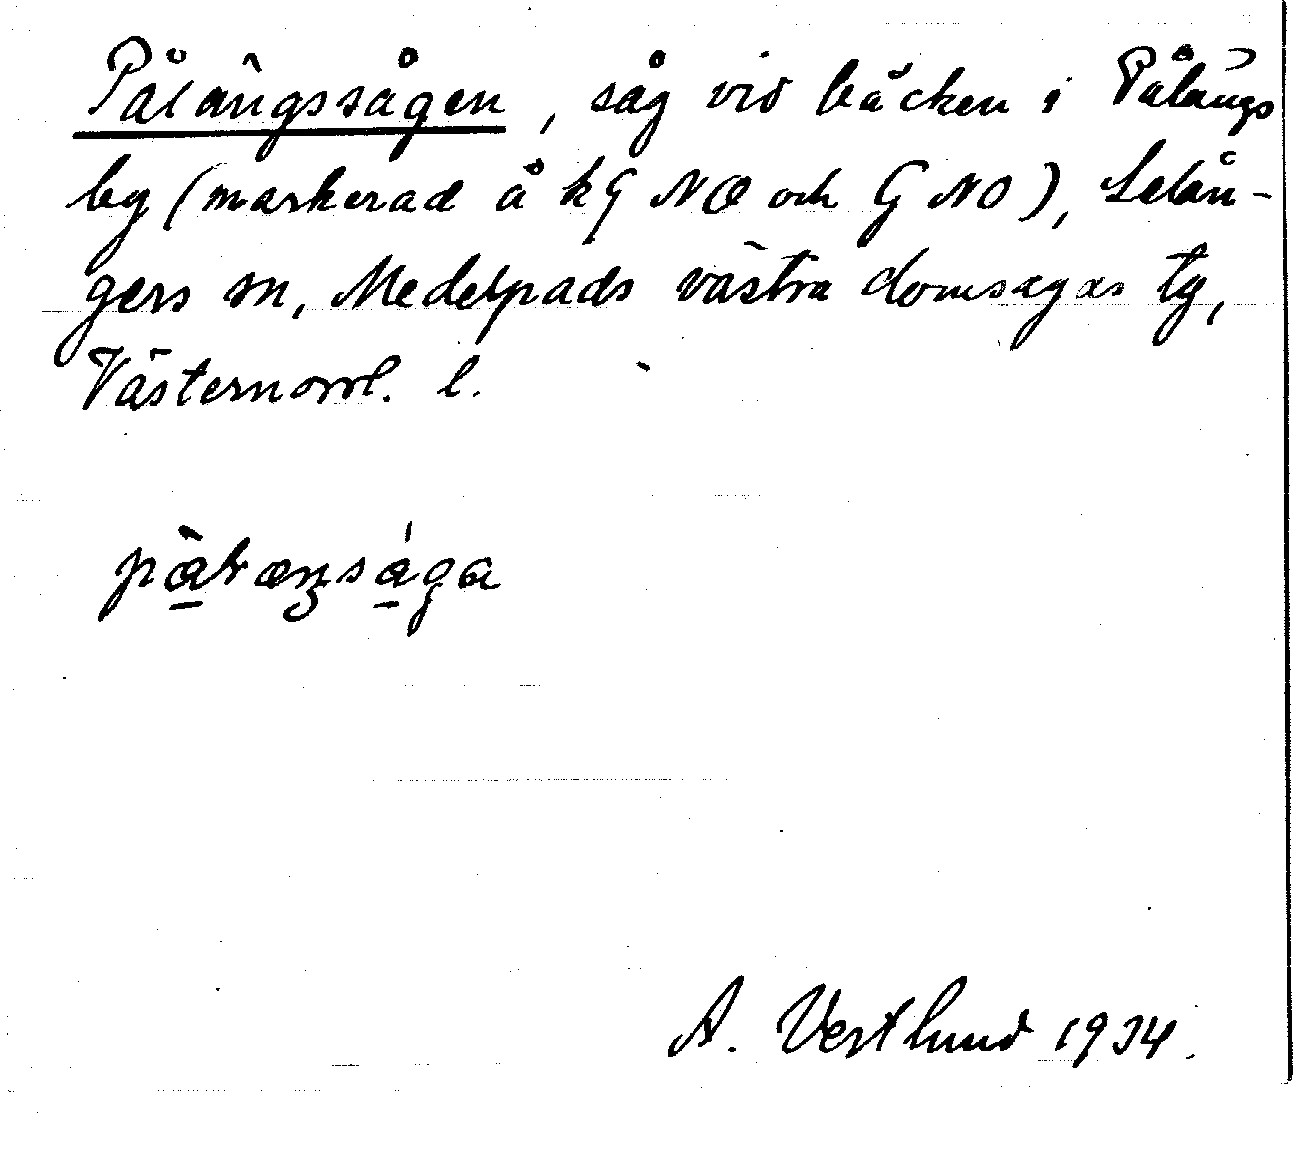 Pålängssågen, såg vid bäcken i Pålängs
by (markerad å kg NO och G NO), Selån-
gers sn, Medelpads västra domsagas tg,
Västernorrl. l.
A. Vestlund 1934.